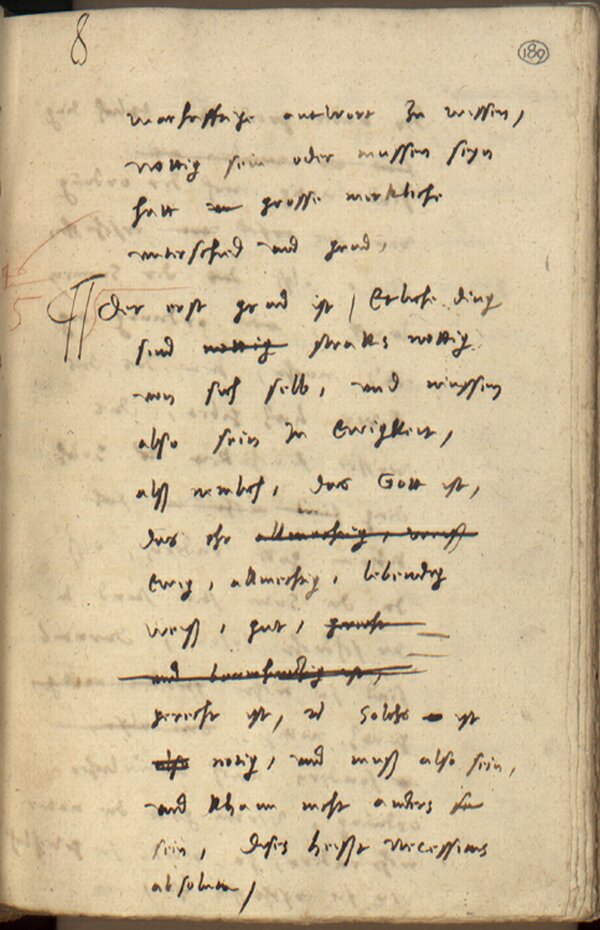 8
189
warhafftige antwort zu wissen,
nottig sein oder mussen seyn
hatt grosse merkliche
unterschied und grad,
Der erst grad ist, Etliche ding
sind nottig stracks nottig
von sich selb, und müssen
also sein in Ewigkeit,
alß nemlich, das Gott ist,
das ehr allmechtig, weiß
Ewig, allmechtig, lebendig
weiß, gut, gerecht
und barmhertzig ist,
gerecht ist, solchs ist
also notig, und muß also sein,
und khann nicht anders
sein, dises heisst necessitas
absoluta,